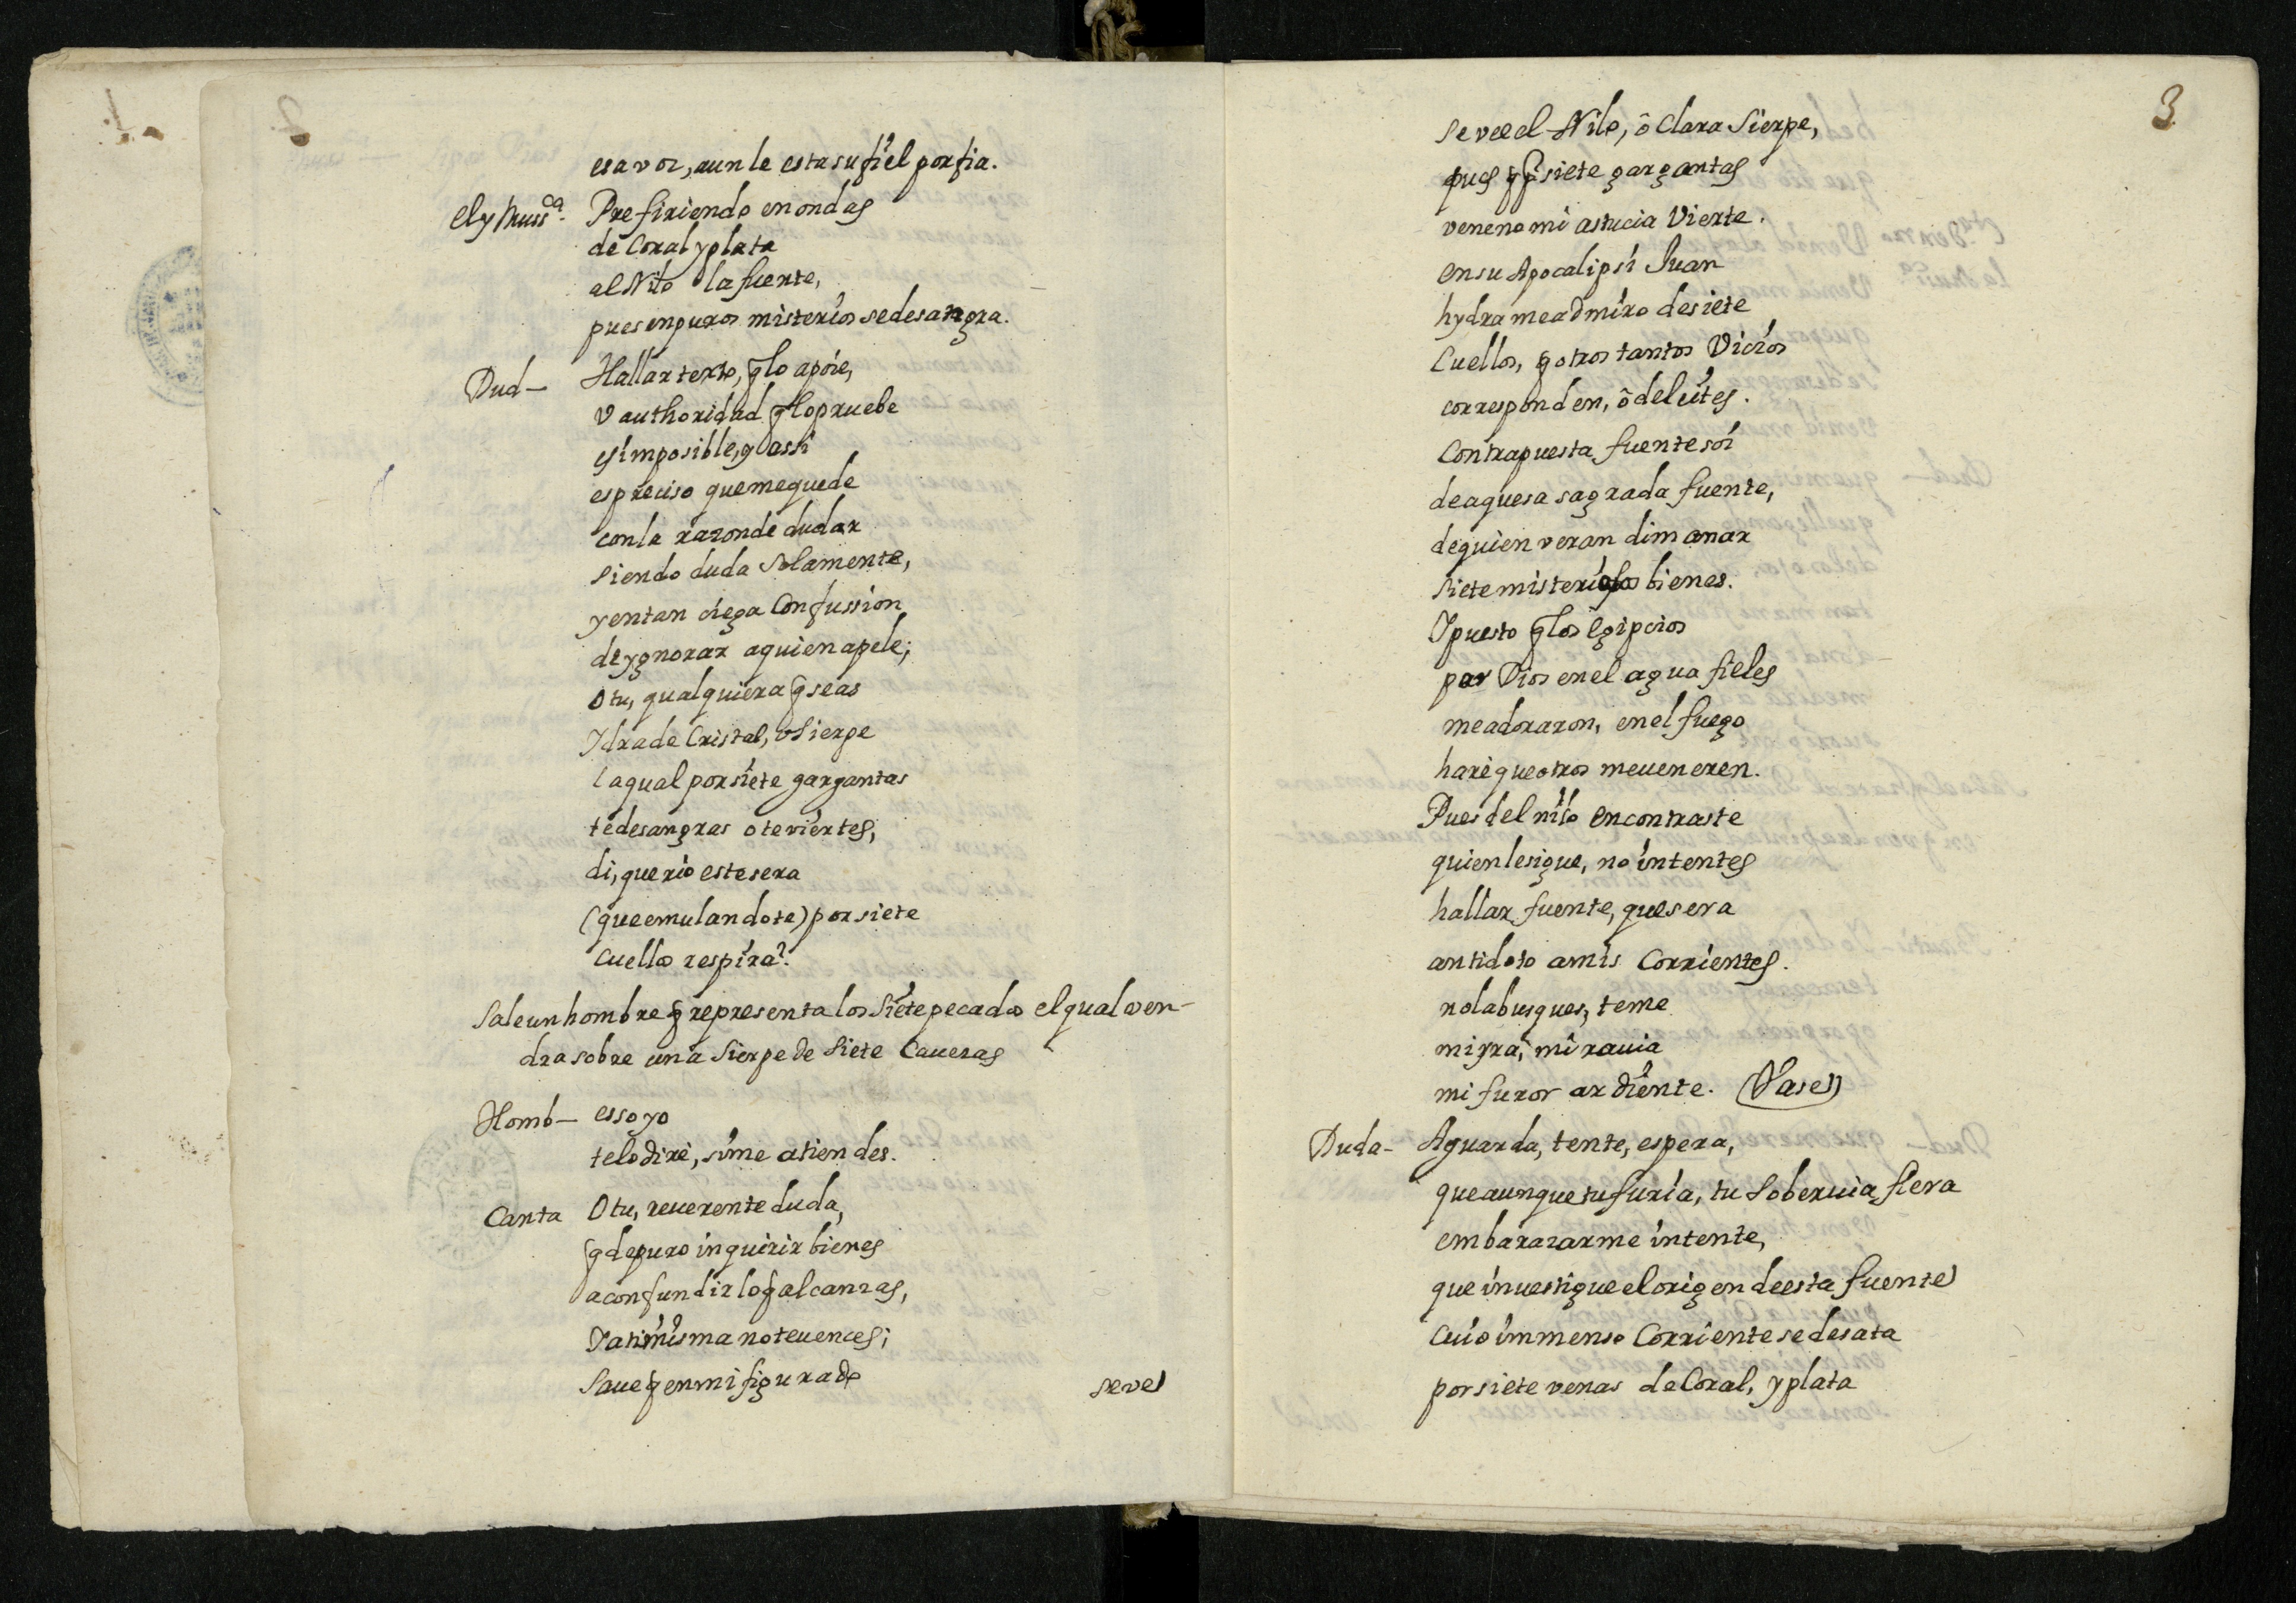 esa voz, aun le esta su fiel porfia.
El y Muss.ca Prefiriendo en ondas
de Coral y plata
al Nilo la fuente,
pues en puros misterios se desangra.
Dud— Hallar texto, q̃ lo apóie,
V authoridad q̃ lo pruebe
es imposible, y assi
es preciso que me quede
con la razon de dudar
siendo duda Solamente,
y en tan ciega Confussion
de ygnorar a quien apele;
O tu, qualquiera q̃ seas
Idra de Cristal, v Sierpe
la qual por siete gargantas
te desangras o te viertes,
di, que rio este sera
(que emulandote) por siete
Cuellos respira?
Sale un hombre q̃ representa los Siete pecados el qual ven-
dra sobre una Sierpe de Siete Caueras
Homb— esso yo
te lo diré, si me atiendes.
Canta O tu, reuerente duda,
q̃ de puro inquirir bienes
a confundir lo q̃ alcanzas,
Va ti misma no te uences;
Saue q̃ en mi figurado
se vee
3
Se vee el Nilo, ô Clara Sierpe,
pues q̃ siete gargantas
veneno mi astucia Vierte.
En su Apocalipsi Juan
hydra me admiro de siete
Cuellos, q̃ otros tantos Vicios
corresponden, ô deleites.
Contrapuesta fuente soi
de aquesa sagrada fuente,
de quien veran dimanar
Siete misteriosos bienes.
I puesto q̃ los Egipcios
por Dios en el agua fieles
me adoraron, en el fuego
haré que otros me ueneren.
Pues del nilo en contraste
quien le sigue, no intentes
hallar fuente, que sera
antidoto a mis Corrientes.
no la busques, teme
mi yra, mi rauia
mi furor ardiente. (Vase)
Duda— Aguarda, tente, espera,
que aunque tu furia, tu Soberuia fiera
embarazarme intente,
que inuestigue el origen de esta fuente
Cuio immenso Corriente se desata
por siete venas de Coral, y plata